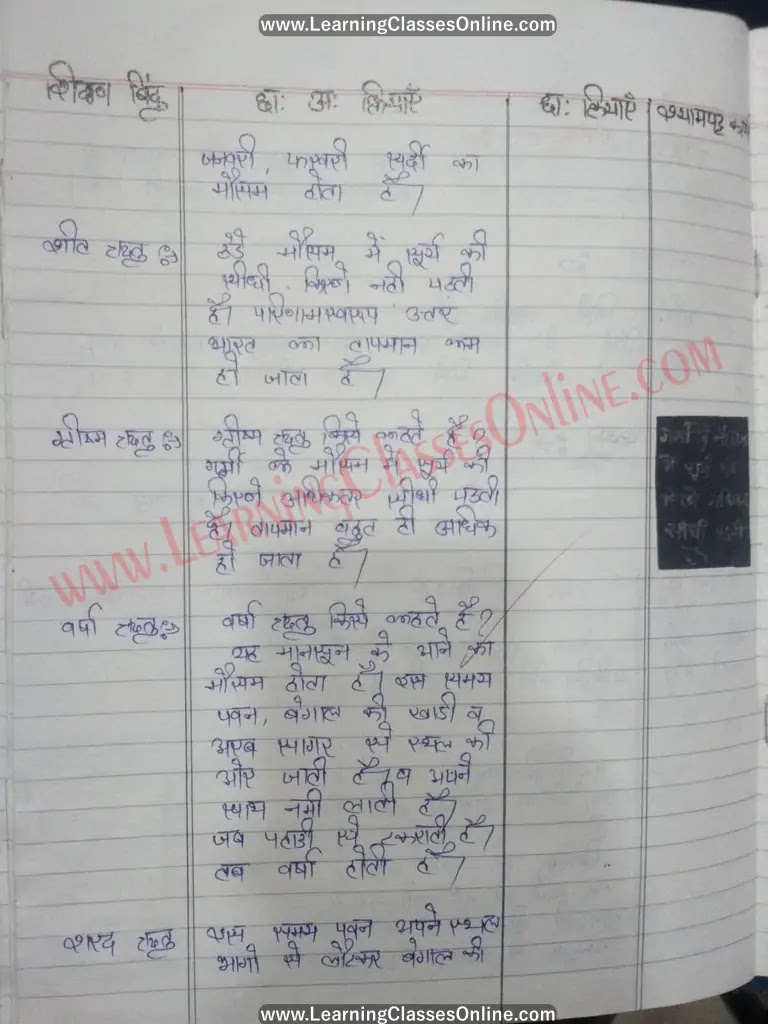 www.LearningClassesOnline.com
शिक्षण बिंदु छा: अ: क्रियाएँ छा: क्रियाएँ श्यामपट्ट कार्य
जनवरी, फरवरी सर्दी का
मौसम होता है।
शीत ऋतु :- ठंडे मौसम में सूर्य की
सीधी किरणे नही पडती
है। परिणामस्वरूप उत्तर
भारत का तापमान कम
हो जाता है।
ग्रीष्म ऋतु :- ग्रीष्म ऋतु किसे कहते है?
गर्मी के मौसम में सूर्य की
किरणे अधिकतर सीधी पडती
है। तापमान बहुत ही अधिक
हो जाता है।
गर्मी के मौसम
में सूर्य की
सीधी पडती
है
www.LearningClassesOnline.com
वर्षा ऋतु :- वर्षा ऋतु किसे कहते है?
यह मानसून के आने का
मौसम होता है। इस समय
पवन, बंगाल की खाडी व
अरब सागर से स्थल की
ओर जाती है। व अपने
साथ नमी लाती है।
जब पहाडी से टकराती है।
तब वर्षा होती है।
शरद ऋतु इस समय पवन अपने स्थल
भागो से लौटकर बंगाल की
www.LearningClassesOnline.com